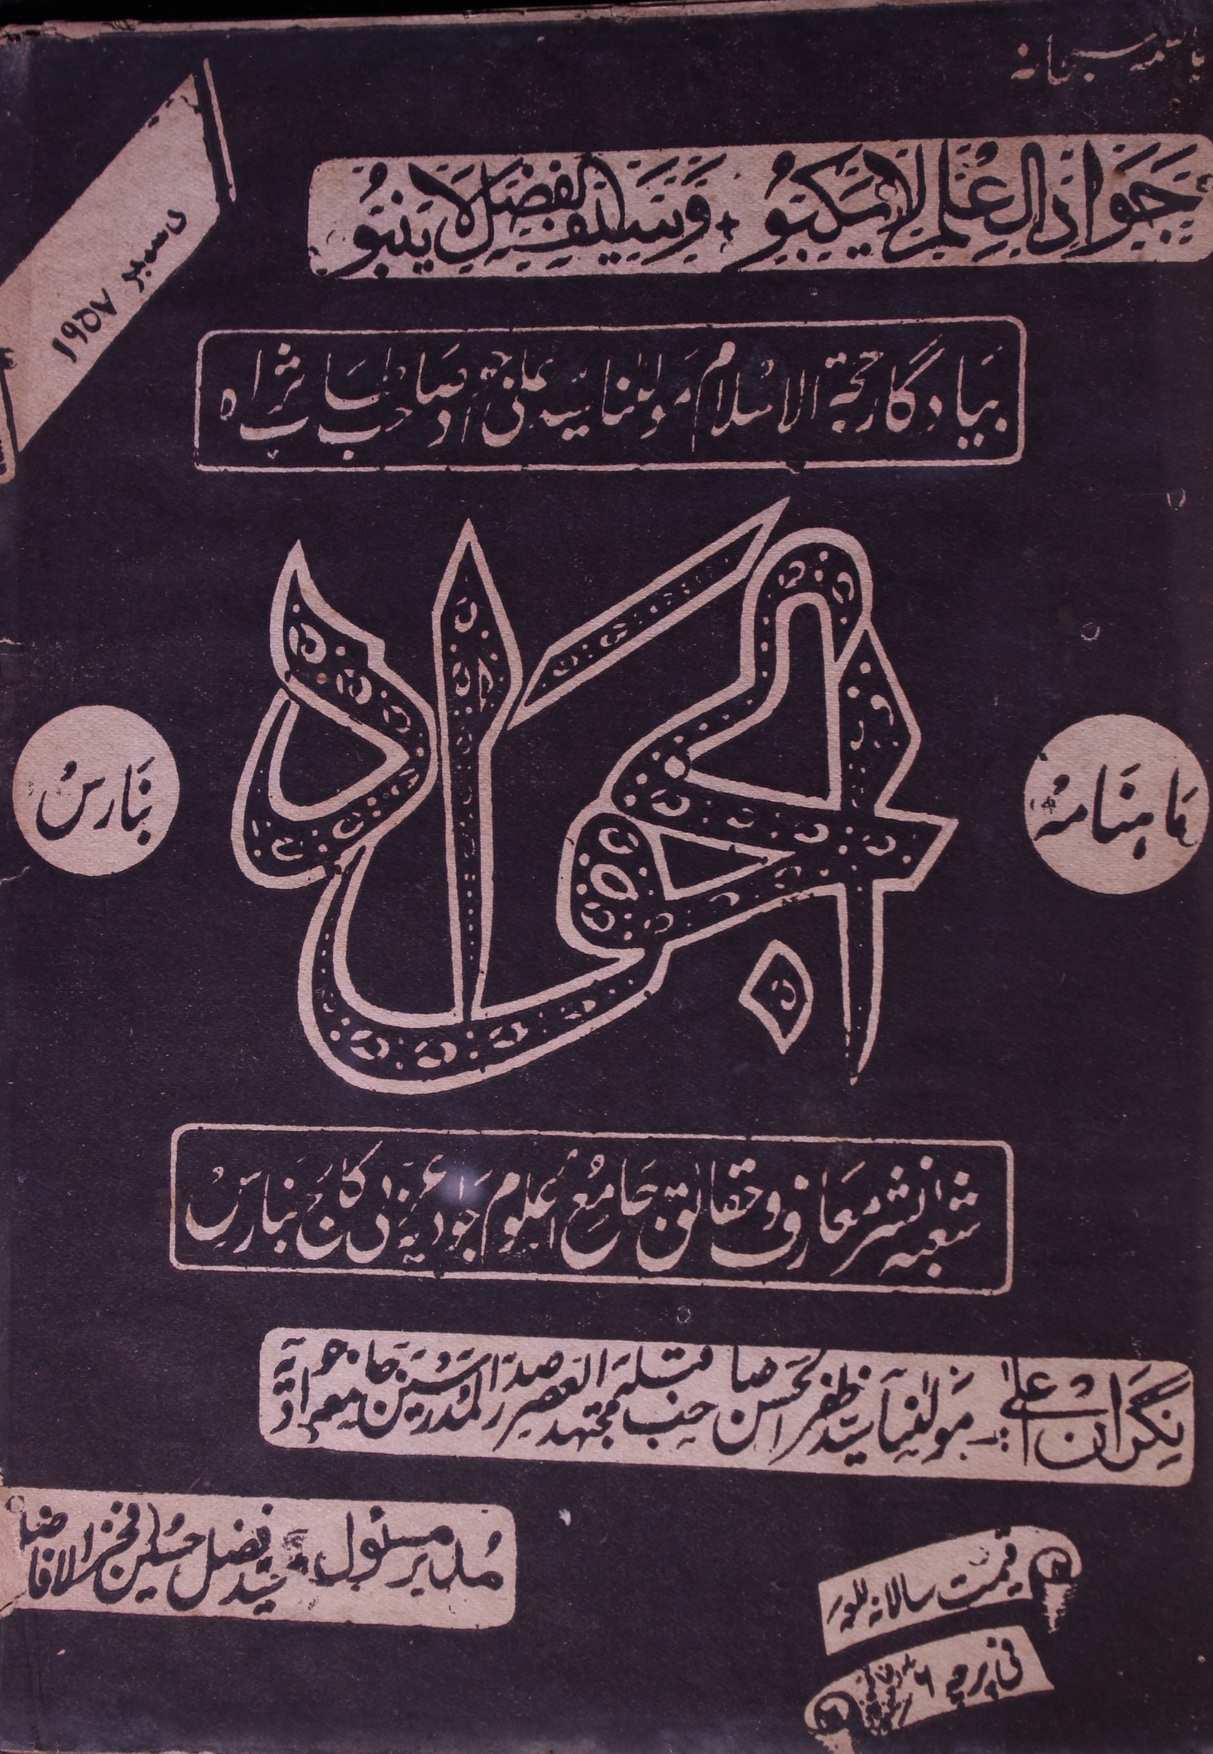 باسمہ سبحانہ
دسمبر ۱۹۵۷
جَوَادُ الْعِلْمِ لَا يَكْبُو + وَسَيْفُ الْفَضْلِ لَا يَنْبُو
بیادگار حجۃ الاسلام مولٰنا سید علی جواد صاحب طاب ثراہ
ماہنامہ
الجواد
بنارس
شعبہ نشر معارف و حقائق جامع العلوم جوادیہ عربی کالج بنارس
نگران اعلیٰ :- مولٰنا سید ظفر الحسن صاحب قبلہ مجتہد العصر صدر المدرسین جامعہ جوادیہ
مدیر مسئول : سید فضل حسین فخر الافاضل
قیمت سالانہ للعہ
فی پرچہ ۶